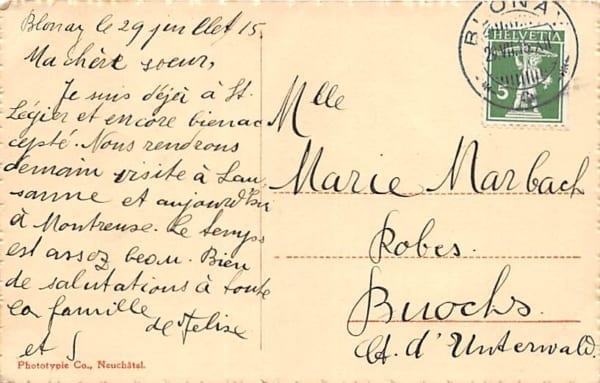 Blonay le 29 juillet 15.
Ma chère soeur,
Je suis déjà à St.
Légier et encore bienac
cepté. Nous rendrons
demain visite à Lau
sanne et aujourd'hui
à Montreuse. Le temps
est assez beau. Bien
de salutations à toute
la famille
de Felise
et J
Phototypie Co., Neuchâtel.
BLONAY
HELVETIA
5
Mlle
Marie Marbach
Robes.
Buochs.
Ct. d'Unterwald.